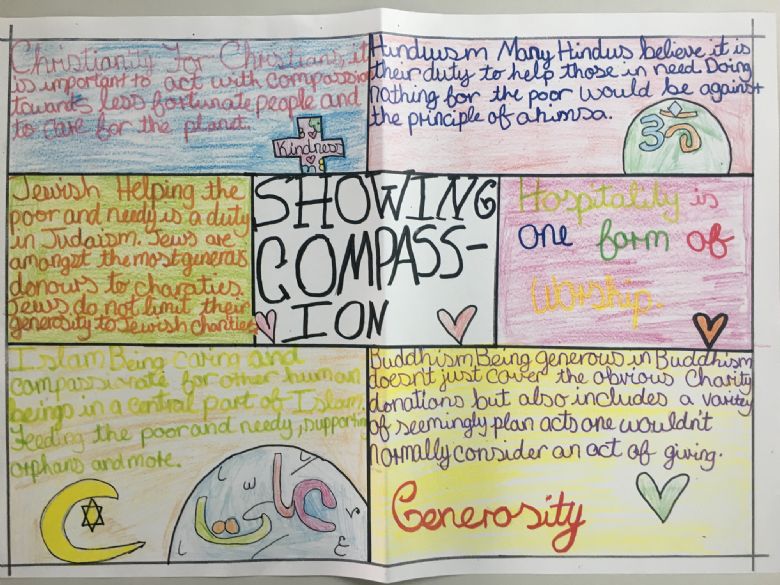 Christianity For Christians it
is important to act with compassion
towards less fortunate people and
to care for the planet.
Kindness
Hinduism Many Hindus believe it is
their duty to help those in need. Doing
nothing for the poor would be against
the principle of ahimsa.
ॐ
Jewish Helping the
poor and needy is a duty
in Judaism. Jews are
amongst the most generous
donours to charities
Jews do not limit their
generosity to Jewish charities
SHOWING
COMPASS-
ION
Hospitality is
one form of
worship.
Islam Being caring and
compassionate for other human
beings in a central part of Islam.
Feeding the poor and needy, supporting
orphans and more.
Buddhism Being generous in Buddhism
doesn't just cover the obvious Charity
donations but also includes a variety
of seemingly plan acts one wouldn't
normally consider an act of giving.
Generosity